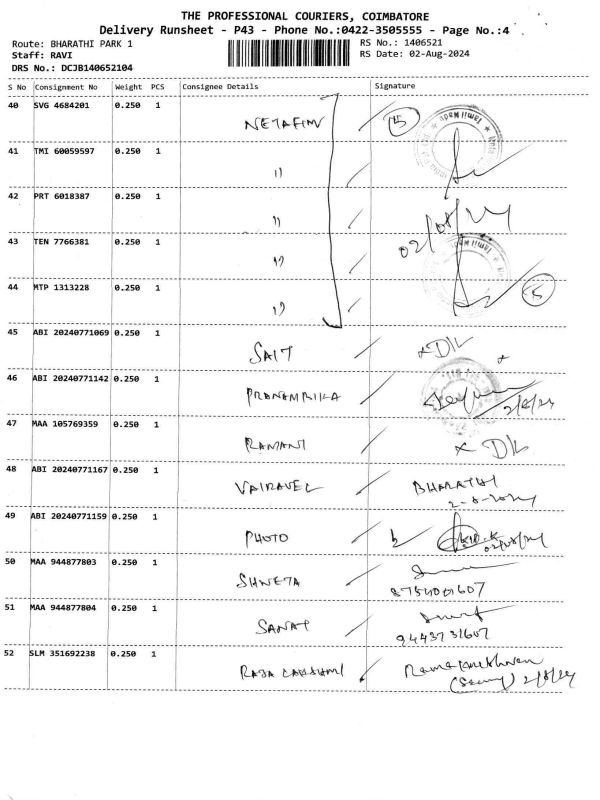 THE PROFESSIONAL COURIERS, COIMBATORE
Delivery Runsheet - P43 - Phone No.:0422-3505555 - Page No.:4
Route: BHARATHI PARK 1 RS No.: 1406521
Staff: RAVI RS Date: 02-Aug-2024
DRS No.: DCJB140652104
S No Consignment No Weight PCS Consignee Details Signature
40 SVG 4684201 0.250 1 NETAFIM 5
41 TMI 60059597 0.250 1 "
42 PRT 6018387 0.250 1 " 02/08/24
43 TEN 7766381 0.250 1 "
44 MTP 1313228 0.250 1 " 5
45 ABI 20240771069 0.250 1 SAIT x D/L
46 ABI 20240771142 0.250 1 2/8/24
47 MAA 105769359 0.250 1 RAMANI x D/L
48 ABI 20240771167 0.250 1 VAIRAVEL BHARATHI
2-8-2024
49 ABI 20240771159 0.250 1 PHOTO 02/08/24
50 MAA 944877803 0.250 1 SHWETA
8754001607
51 MAA 944877804 0.250 1 SANAT
9443731607
52 SLM 351692238 0.250 1 RAJA LAKSHMI Ramakrishnan
2/8/24